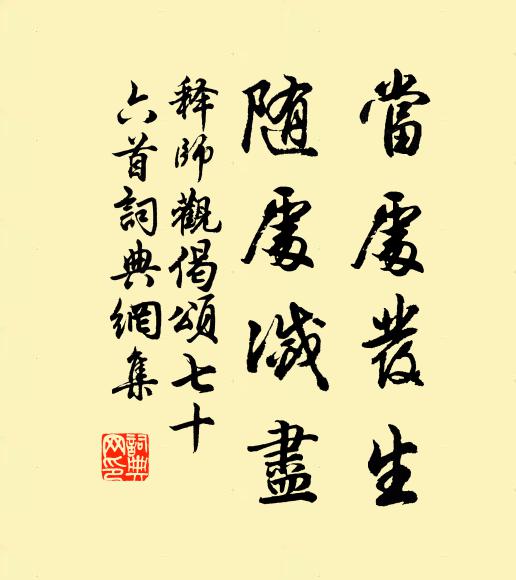 當處發生
随處滅盡
释師觀偈頌七十
六首詞典網集
詞典網印